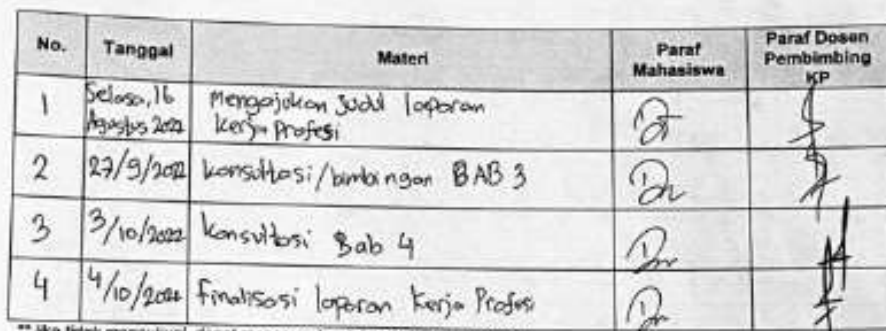 No. Tanggal Materi Paraf Mahasiswa Paraf Dosen Pembimbing KP
1 Selasa, 16 Agustus 2022 Mengajukan Judul laporan Kerja Profesi
2 27/9/2022 konsultasi/bimbingan BAB 3
3 3/10/2022 konsultasi Bab 4
4 4/10/2022 Finalisasi laporan Kerja Profesi